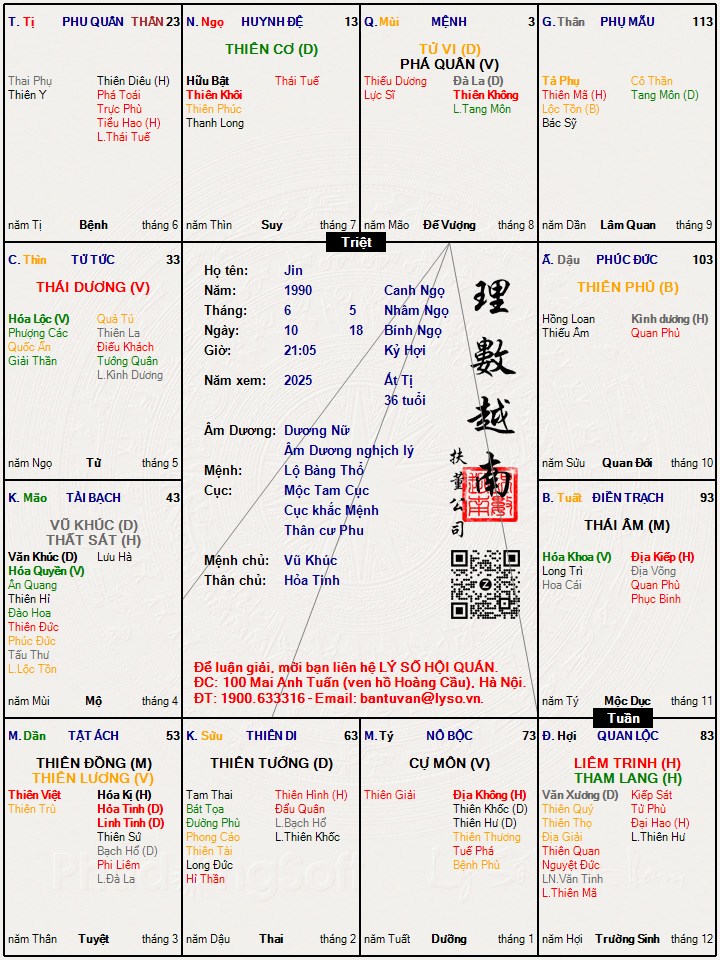 T. Tị PHU QUÂN THÂN 23
Thai Phụ
Thiên Y
Thiên Diêu (H)
Phá Toái
Trực Phù
Tiểu Hao (H)
L.Thái Tuế
năm Tị Bệnh tháng 6
N. Ngọ HUYNH ĐỆ 13
THIÊN CƠ (D)
Hữu Bật
Thiên Khôi
Thiên Phúc
Thanh Long
Thái Tuế
năm Thìn Suy tháng 7
Q. Mùi MỆNH 3
TỬ VI (D)
PHÁ QUÂN (V)
Thiếu Dương
Lực Sĩ
Đà La (D)
Thiên Không
L.Tang Môn
năm Mão Đế Vượng tháng 8
G. Thân PHỤ MẪU 113
Tả Phụ
Thiên Mã (H)
Lộc Tồn (B)
Bác Sỹ
Cô Thần
Tang Môn (D)
năm Dần Lâm Quan tháng 9
Triệt
C. Thìn TỬ TỨC 33
THÁI DƯƠNG (V)
Hóa Lộc (V)
Phượng Các
Quốc Ấn
Giải Thần
Quả Tú
Thiên La
Điếu Khách
Tướng Quân
L.Kình Dương
năm Ngọ Tử tháng 5
Họ tên: Jin
Năm: 1990 Canh Ngọ
Tháng: 6 5 Nhâm Ngọ
Ngày: 10 18 Bính Ngọ
Giờ: 21:05 Kỷ Hợi
Năm xem: 2025 Ất Tị
36 tuổi
Âm Dương: Dương Nữ
Âm Dương nghịch lý
Mệnh: Lộ Bàng Thổ
Cục: Mộc Tam Cục
Cục khắc Mệnh
Thân cư Phu
Mệnh chủ: Vũ Khúc
Thân chủ: Hỏa Tinh
理數越南
扶董公司
Để luận giải, mời bạn liên hệ LÝ SỐ HỘI QUÁN.
ĐC: 100 Mai Anh Tuấn (ven hồ Hoàng Cầu), Hà Nội.
ĐT: 1900.633316 - Email: bantuvan@lyso.vn.
Ấ. Dậu PHÚC ĐỨC 103
THIÊN PHỦ (B)
Hồng Loan
Thiếu Âm
Kình dương (H)
Quan Phủ
năm Sửu Quan Đới tháng 10
K. Mão TÀI BẠCH 43
VŨ KHÚC (D)
THẤT SÁT (H)
Văn Khúc (D)
Hóa Quyền (V)
Ân Quang
Thiên Hỉ
Đào Hoa
Thiên Đức
Phúc Đức
Tấu Thư
L.Lộc Tồn
Lưu Hà
năm Mùi Mộ tháng 4
B. Tuất ĐIỀN TRẠCH 93
THÁI ÂM (M)
Hóa Khoa (V)
Long Trì
Hoa Cái
Địa Kiếp (H)
Địa Võng
Quan Phù
Phục Binh
năm Tý Mộc Dục tháng 11
Tuần
M. Dần TẬT ÁCH 53
THIÊN ĐỒNG (M)
THIÊN LƯƠNG (V)
Thiên Việt
Thiên Trù
Hóa Kị (H)
Hỏa Tinh (D)
Linh Tinh (D)
Thiên Sứ
Bạch Hổ (D)
Phi Liêm
L.Đà La
năm Thân Tuyệt tháng 3
K. Sửu THIÊN DI 63
THIÊN TƯỚNG (D)
Tam Thai
Bát Tọa
Đường Phù
Phong Cáo
Thiên Tài
Long Đức
Hỉ Thần
Thiên Hình (H)
Đẩu Quân
L.Bạch Hổ
L.Thiên Khốc
năm Dậu Thai tháng 2
M. Tý NÔ BỘC 73
CỰ MÔN (V)
Thiên Giải
Địa Không (H)
Thiên Khốc (D)
Thiên Hư (D)
Thiên Thương
Tuế Phá
Bệnh Phù
năm Tuất Dưỡng tháng 1
Đ. Hợi QUAN LỘC 83
LIÊM TRINH (H)
THAM LANG (H)
Văn Xương (D)
Thiên Quý
Thiên Thọ
Địa Giải
Thiên Quan
Nguyệt Đức
LN.Văn Tinh
L.Thiên Mã
Kiếp Sát
Tử Phù
Đại Hao (H)
L.Thiên Hư
năm Hợi Trường Sinh tháng 12